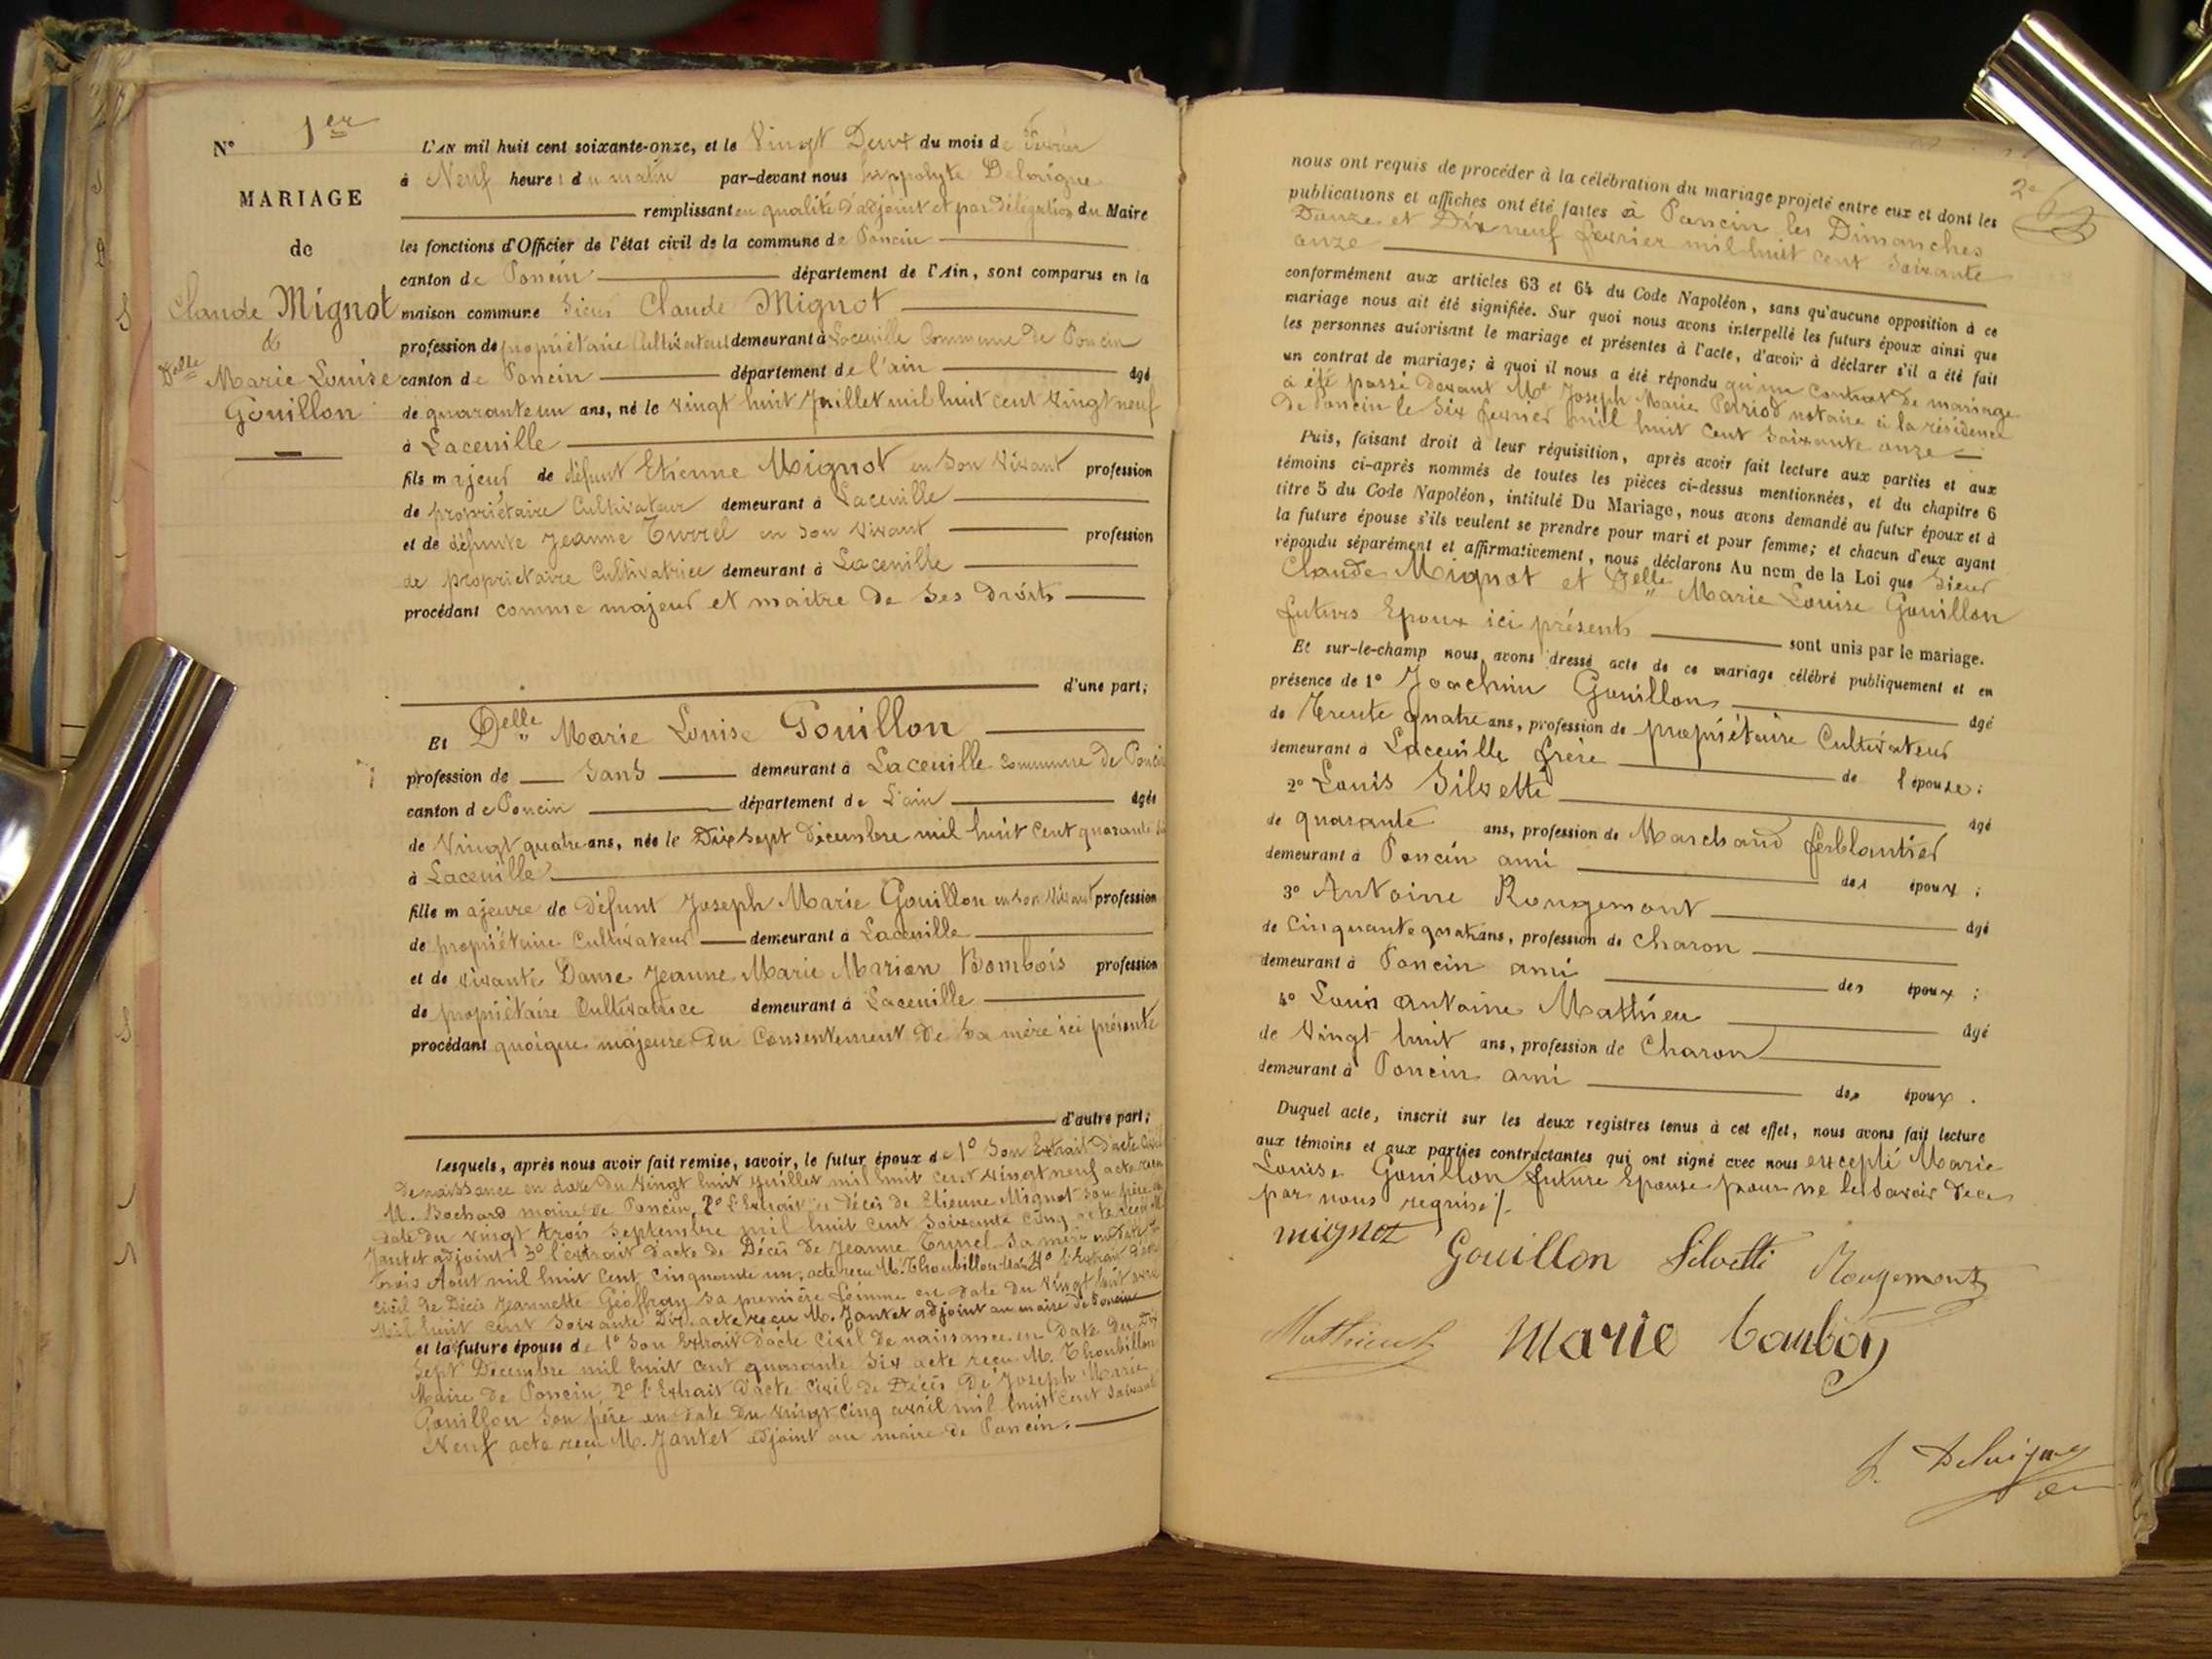 N° 1er
MARIAGE
de
Claude Mignot
&
Delle Marie Louise
Gouillon
L'AN mil huit cent soixante-onze, et le Vingt Deux du mois de Février
à Neuf heures du matin par-devant nous hippolyte Delaigue
remplissant en qualité d'adjoint et par délégation du Maire
les fonctions d'Officier de l'état civil de la commune de Poncin
canton de Poncin département de l'Ain, sont comparus en la
maison commune Sieur Claude Mignot
profession de propriétaire Cultivateur demeurant à Laceuille Commune de Poncin
canton de Poncin département de l'ain âgé
de quarante un ans, né le vingt huit Juillet mil huit cent vingt neuf
à Laceuille
fils majeur de défunt Etienne Mignot en son vivant profession
de propriétaire Cultivateur demeurant à Laceuille
et de défunte Jeanne Turrel en son vivant profession
de propriétaire Cultivatrice demeurant à Laceuille
procédant comme majeur et maitre de ses droits
d'une part;
Et Delle Marie Louise Gouillon
profession de sans demeurant à Laceuille Commune de Poncin
canton de Poncin département de L'ain âgée
de Vingt quatre ans, née le Dix sept décembre mil huit cent quarante six
à Laceuille
fille majeure de défunt Joseph Marie Gouillon en son vivant profession
de propriétaire Cultivateur demeurant à Laceuille
et de vivante Dame Jeanne Marie Marion Bombois profession
de propriétaire Cultivatrice demeurant à Laceuille
procédant quoique majeure du Consentement de sa mère ici présente
d'autre part;
Lesquels, après nous avoir fait remise, savoir, le futur époux de 1° son Extrait d'acte Civil
de naissance en date du vingt huit juillet mil huit cent vingt neuf acte reçu
M. Bochard maire de Poncin, 2° l'Extrait de décès de Etienne Mignot son père en
date du vingt trois septembre mil huit cent soixante cinq acte reçu M.
Jantet adjoint 3° l'extrait d'acte de Décès de Jeanne Turrel sa mère en date du
trois Aout mil huit cent cinquante un, acte reçu M. Thoubillon 4° l'Extrait d'acte
civil de Décès Jeannette Géoffray sa première femme en date du Vingt huit
Mil huit cent soixante Dix acte reçu M. Jantet adjoint au maire de Poncin
et la future épouse de 1° son Extrait d'acte Civil de naissance en date du Dix
sept Décembre mil huit cent quarante six acte reçu M. Thoubillon
Maire de Poncin, 2° l'Extrait d'acte civil de Décès de Joseph Marie
Gouillon son père en date du vingt cinq avril mil huit cent soixante
Neuf acte reçu M. Jantet adjoint au maire de Poncin.
2e
nous ont requis de procéder à la célébration du mariage projeté entre eux et dont les
publications et affiches ont été faites à Poncin les Dimanches
Douze et Dix neuf fevrier mil huit cent soixante
onze
conformément aux articles 63 et 64 du Code Napoléon, sans qu'aucune opposition à ce
mariage nous ait été signifiée. Sur quoi nous avons interpellé les futurs époux ainsi que
les personnes autorisant le mariage et présentes à l'acte, d'avoir à déclarer s'il a été fait
un contrat de mariage; à quoi il nous a été répondu qu'un Contrat de mariage
a été passé devant Me Joseph Marie Perriod notaire à la résidence
de Poncin le six fevrier mil huit cent soixante onze
Puis, faisant droit à leur réquisition, après avoir fait lecture aux parties et aux
témoins ci-après nommés de toutes les pièces ci-dessus mentionnées, et du chapitre 6
titre 5 du Code Napoléon, intitulé Du Mariage, nous avons demandé au futur époux et à
la future épouse s'ils veulent se prendre pour mari et pour femme; et chacun d'eux ayant
répondu séparément et affirmativement, nous déclarons Au nom de la Loi que Sieur
Claude Mignot et Delle Marie Louise Gouillon
futurs Epoux ici présents sont unis par le mariage.
Et sur-le-champ nous avons dressé acte de ce mariage célébré publiquement et en
présence de 1° Joachim Gouillon âgé
de Trente quatre ans, profession de propriétaire Cultivateur
demeurant à Laceuille frère de l'épouse;
2° Louis Silvetti âgé
de quarante ans, profession de Marchand ferblantier
demeurant à Poncin ami des époux;
3° Antoine Rougemont âgé
de Cinquante quatre ans, profession de Charon
demeurant à Poncin ami des époux;
4° Louis Antoine Mathieu âgé
de Vingt huit ans, profession de Charon
demeurant à Poncin ami des époux.
Duquel acte, inscrit sur les deux registres tenus à cet effet, nous avons fait lecture
aux témoins et aux parties contractantes qui ont signé avec nous excepté Marie
Louise Gouillon future Epouse pour ne le savoir de ce
par nous requise %.
mignot Gouillon Silvetti Rougemont
Mathieu Marie bombois
h. Delaigue